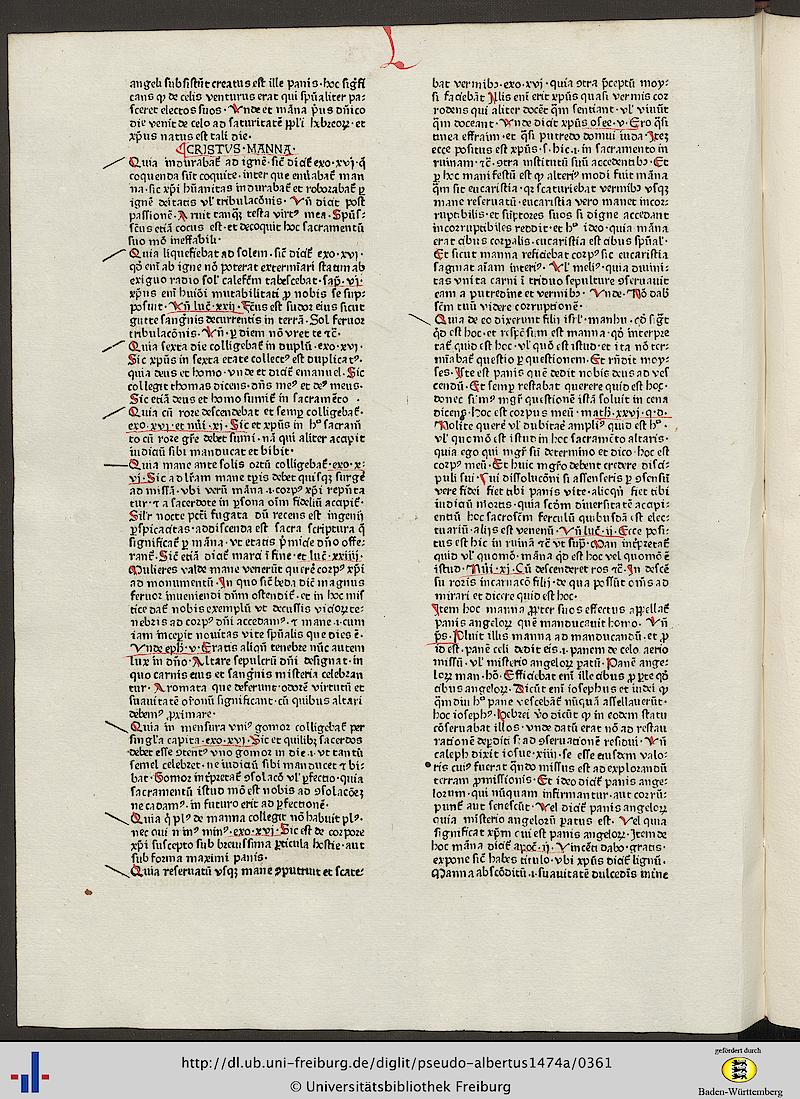 L
angeli subsistūt creatus est ille panis · hoc sigᷠfi
cans ꝙ de celis venturus erat qui spūaliter pa⸗
sceret electos suos · Vnde et māna pͥus dn̄ico
die venit de celo ad saturitatē ppl̄i hebreoꝝ · et
xp̄us natus est tali die ·
CRISTVS · MANNA ·
Quia indurabat᷑ ad ignē · sic̄ dicit᷑ exo · xvj · q̄
coquenda sūt coquite · inter que
na · sic xp̄i hūanitas indurabat᷑ et roborabat᷑ ꝑ
ignē deitatis vl᷑ tribulacōnis · Vn̄ dicit post
passionē · Aruit tanqȝ testa virtꝰ mea · Spūs⸗
sc̄us etiā cocus est · et decoquit hoc sacramentū
suo mō ineffabili ·
Quia liquefiebat ad solem · sic̄ dicit᷑ exo · xvj ·
qd̄ eni᷑ ab igne nō poterat extermīari statim ab
exiguo radio sol᷑ calefc̄m tabescebat · sap̄ · vj ·
xp̄us eni᷑ huiōi mutabilitati ꝓ nobis se sup⸗
posuit · Vn̄ luc̄ · xxij · Fc̄us est sudor eius sicut
gutte sangn̄is decurrentis in terrā · Sol feruor
tribulacōnis · Vn̄ · ꝑ diem nō vret te ⁊c̄ ·
Quia sexta die colligebat᷑ in duplū · exo · xvj ·
Sic xp̄us in sexta etate collectꝰ est duplicatꝰ ·
quia deus et homo · vnde et dicit᷑ emanuel · Sic
collegit thomas dicens · dn̄s meꝰ et deꝰ meus ·
Sic etiā deus et homo sumit᷑ in sacramēto ·
Quia cū rore descendebat et semꝑ colligebat᷑ ·
exo · xvj · et nūi · xj · Sic et xp̄us in hͦ sacram̄
to cū rore gr̄e debet sumi · nā qui aliter accipit
iudiciū sibi manducat et bibit ·
Quia mane ante solis ortū colligebat᷑ · exo · x⸗
vj · Sic ad lr̄am mane tp̄is debet quisqȝ surgē
ad missā · vbi verū māna · i · corpꝰ xp̄i repūta
tur · ⁊ a sacerdote in ꝑsona oīm fideliū accipit᷑ ·
Sil᷑r nocte pctī fugata dū recens est ingenij
ꝑspicacitas · addiscenda est sacra scriptura q̄
significat᷑ ꝑ māna · vt etatis pͥmicie dn̄o offe⸗
rant᷑ · Sic etiā dicit᷑ marci ī fine · et luc̄ · xxiiij ·
Mulieres valde mane venerūt querē corpꝰ xp̄i
ad monumentū · In quo sic̄ beda dic̄ magnus
feruor inueniendi dn̄m ostendit᷑ · et in hoc mis
tice dat᷑ nobis exemplū vt decussis vicioꝝ te⸗
nebris ad corpꝰ dn̄i accedamꝰ · ⁊ mane · i · cum
iam incepit nouitas vite spūalis que dies ē ·
Vnde eph̄ · v · Eratis aliqn̄ tenebre nūc autem
lux in dn̄o · Altare sepulcrū dn̄i designat · in
quo carnis eius et sangn̄is misteria celebran
tur · Aromata que deferunt odorē virtutū et
suauitatē or̄onū significant · cū quibus altari
debemꝰ ꝓximare ·
Quia in mensura vniꝰ gomor colligebat᷑ per
singl᷑a capita · exo · xvj · Sic et quilibȝ sacerdos
debet esse ꝯtentꝰ vno gomor in die · i · vt tantū
semel celebret · ne iudiciū sibi manducet ⁊ bi⸗
bat · Gomor int̄pretat᷑ ꝯsolacō vl᷑ ꝑfectio · quia
sacramentū istud mō est nobis ad ꝯsolacōeȝ
ne cadamꝰ · in futuro erit ad ꝑfectionē ·
Quia q̄ plꝰ de manna collegit nō habuit plꝰ ·
nec qui minꝰ minꝰ · exo · xvj · Sic est de corpore
xp̄i suscepto sub breuissima ꝑticula hostie · aut
sub forma maximi panis ·
Quia reseruatū vsqȝ mane ꝯputruit et scate⸗
bat vermibꝫ · exo · xvj · quia ꝯtra p̄ceptū moy⸗
si faciebāt · Illis eni᷑ erit xp̄us quasi vermis cor
rodens qui aliter docēt qm̄ sentiant · vl᷑ viuūt
qm̄ doceant · Vnde dicit xp̄us osee · v · Ego qͣsi
tinea effraim · et qͣsi putredo domui iuda · Iteȝ
ecce positus est xp̄us · s · hic · i · in sacramento in
ruinam ⁊c̄ · ꝯtra institutū suū accedentibꝫ · Et
ꝑ hoc manifestū est ꝙ alteriꝰ modi fuit māna
qm̄ sic eucaristia · qꝛ scaturiebat vermibꝫ vsqȝ
mane reseruatū · eucaristia vero manet incor⸗
ruptibilis · et sūptores suos si digne accedant
incorruptibiles reddit · et hͦ ideo · quia māna
erat cibus corꝑalis · eucaristia est cibus spūal᷑ ·
Et sicut manna reficiebat corpꝰ sic eucaristia
saginat aīam interiꝰ · Vl᷑ meliꝰ · quia diuini⸗
tas vnita carni ī triduo sepulture ꝯseruauit
eam a putredine et vermibꝫ · Vnde · Nō dab̄
sc̄m tuū videre corruptionē ·
Quia de eo dixerunt filij isrl᷑ · manhu · qd̄ sigᷠt
qd̄ est hoc · et respc̄u sum est manna · qd̄ interpre
tat᷑ quid est hoc · vl᷑ quō est istud · et ita nō ter⸗
mīabat᷑ questio ꝑ questionem · Et rn̄dit moy⸗
ses · Iste est panis quē dedit nobis deus ad ves
cendū · Et semꝑ restabat querere quid est hoc ·
donec sūmꝰ mgr̄ questionē istā soluit in cena
dicens · hoc est corpus meū · math̄ · xxvj · q · d ·
Nolite querē vl᷑ dubitāe ampliꝰ quid est hͦ ·
vl᷑ quomō est istud in hoc sacramēto altaris ·
quia ego qui mgr̄ sū determino et dico · hoc est
corpꝰ meū · Et huic mgr̄o debent credere disci⸗
puli sui · Cui dissolucōni si assenseris ꝑ ꝯsensū
vere fidei fiet tibi panis vite · alioqn̄ fiet tibi
iudiciū mortis · quia scd̄m diuersitatē accipi⸗
entiū hoc sacrosc̄m ferculū quibusdā est elec⸗
tuariū · alijs est venenū · Vn̄ luc̄ · ij · Ecce posi⸗
tus est hic in ruinā ⁊c̄ vt sup̄ · Man int̄pretat᷑
quid vl᷑ quomō · māna qd̄ est hoc vel quomō ē
istud · Nūi · xj · Cū descenderet ros ⁊c̄ · In descē
su roris incarnacō filij · de qua possūt om̄s ad
mirari et dicere quid est hoc ·
Item hoc manna ꝓpter suos effectus appellat᷑
panis angeloꝝ quē manducauit homo · Vn̄
p̄s · Pluit illis manna ad manducandū · et ꝓ
id est · panē celi dedit eis · i · panem de celo aerio
missū · vl᷑ misterio angeloꝝ patū · Panē ange⸗
loꝝ man · hō · Efficiebat eni᷑ ille cibus ꝓ ꝑte qd̄
cibus angeloꝝ · Dicūt eni᷑ iosephus et iudei ꝙ
qm̄diu hͦ pane vescebāt nūquā assellauerūt ·
hoc iosephꝰ · Hebrei vo dicūt ꝙ in eodem statu
cōseruabat illos · vnde datū erat nō ad restau
rationē deꝑditi sꝫ ad ꝯseruationē residui · Vn̄
caleph dixit iosue · xiiij · se esse eiusdem valo⸗
ris cuiꝰ fuerat quādo missus est ad explorandū
terram ꝓmissionis · Et ideo dicit᷑ panis ange⸗
lorum · qui nūquam infirmantur · aut corrū⸗
punt᷑ aut senescūt · Vel dicit᷑ panis angeloꝝ
quia misterio angeloꝝ patus est · Vel quia
significat xp̄m cui est panis angeloꝝ · Item de
hoc māna dicit᷑ apoc̄ · ij · Vincēti dabo · gratis ·
expone sic̄ habes titulo · vbi xp̄us dicit᷑ lignū ·
Manna abscōditū · i · suauitatē dulcedīs mine
http://dl.ub.uni-freiburg.de/diglit/pseudo-albertus1474a/0361
© Universitätsbibliothek Freiburg
gefördert durch
Baden-Württemberg